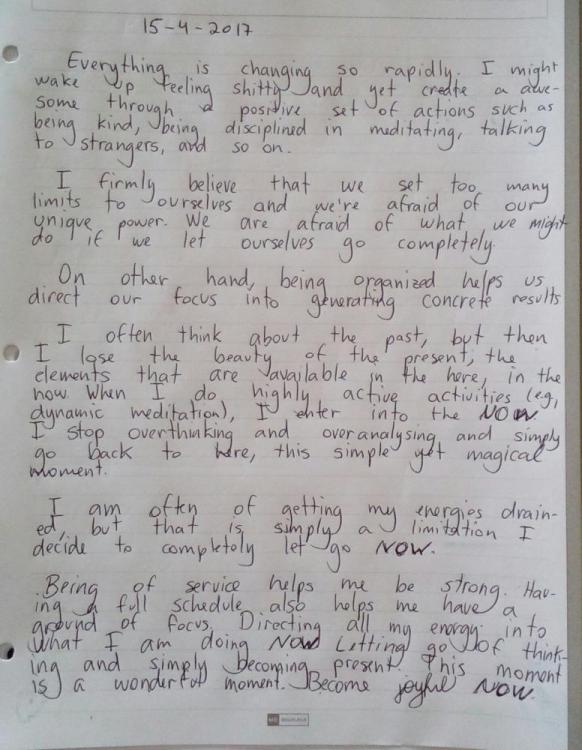 15-4-2017
Everything is changing so rapidly. I might
wake up feeling shitty and yet create a awe-
some through a positive set of actions such as
being kind, being disciplined in meditating, talking
to strangers, and so on.
I firmly believe that we set too many
limits to ourselves and we're afraid of our
unique power. We are afraid of what we might
do if we let ourselves go completely.
On other hand, being organized helps us
direct our focus into generating concrete results
I often think about the past, but then
I lose the beauty of the present, the
elements that are available in the here, in the
now. When I do highly active activities (e.g,
dynamic meditation), I enter into the NOW.
I stop overthinking and overanalysing and simply
go back to here, this simple yet magical
moment.
I am often of getting my energies drain-
ed, but that is simply a limitation I
decide to completely let go NOW.
Being of service helps me be strong. Hav-
ing a full schedule also helps me have a
ground of focus. Directing all my energy into
what I am doing NOW. Letting go of think-
ing and simply becoming present. This moment
is a wonderful moment. Become joyful NOW.